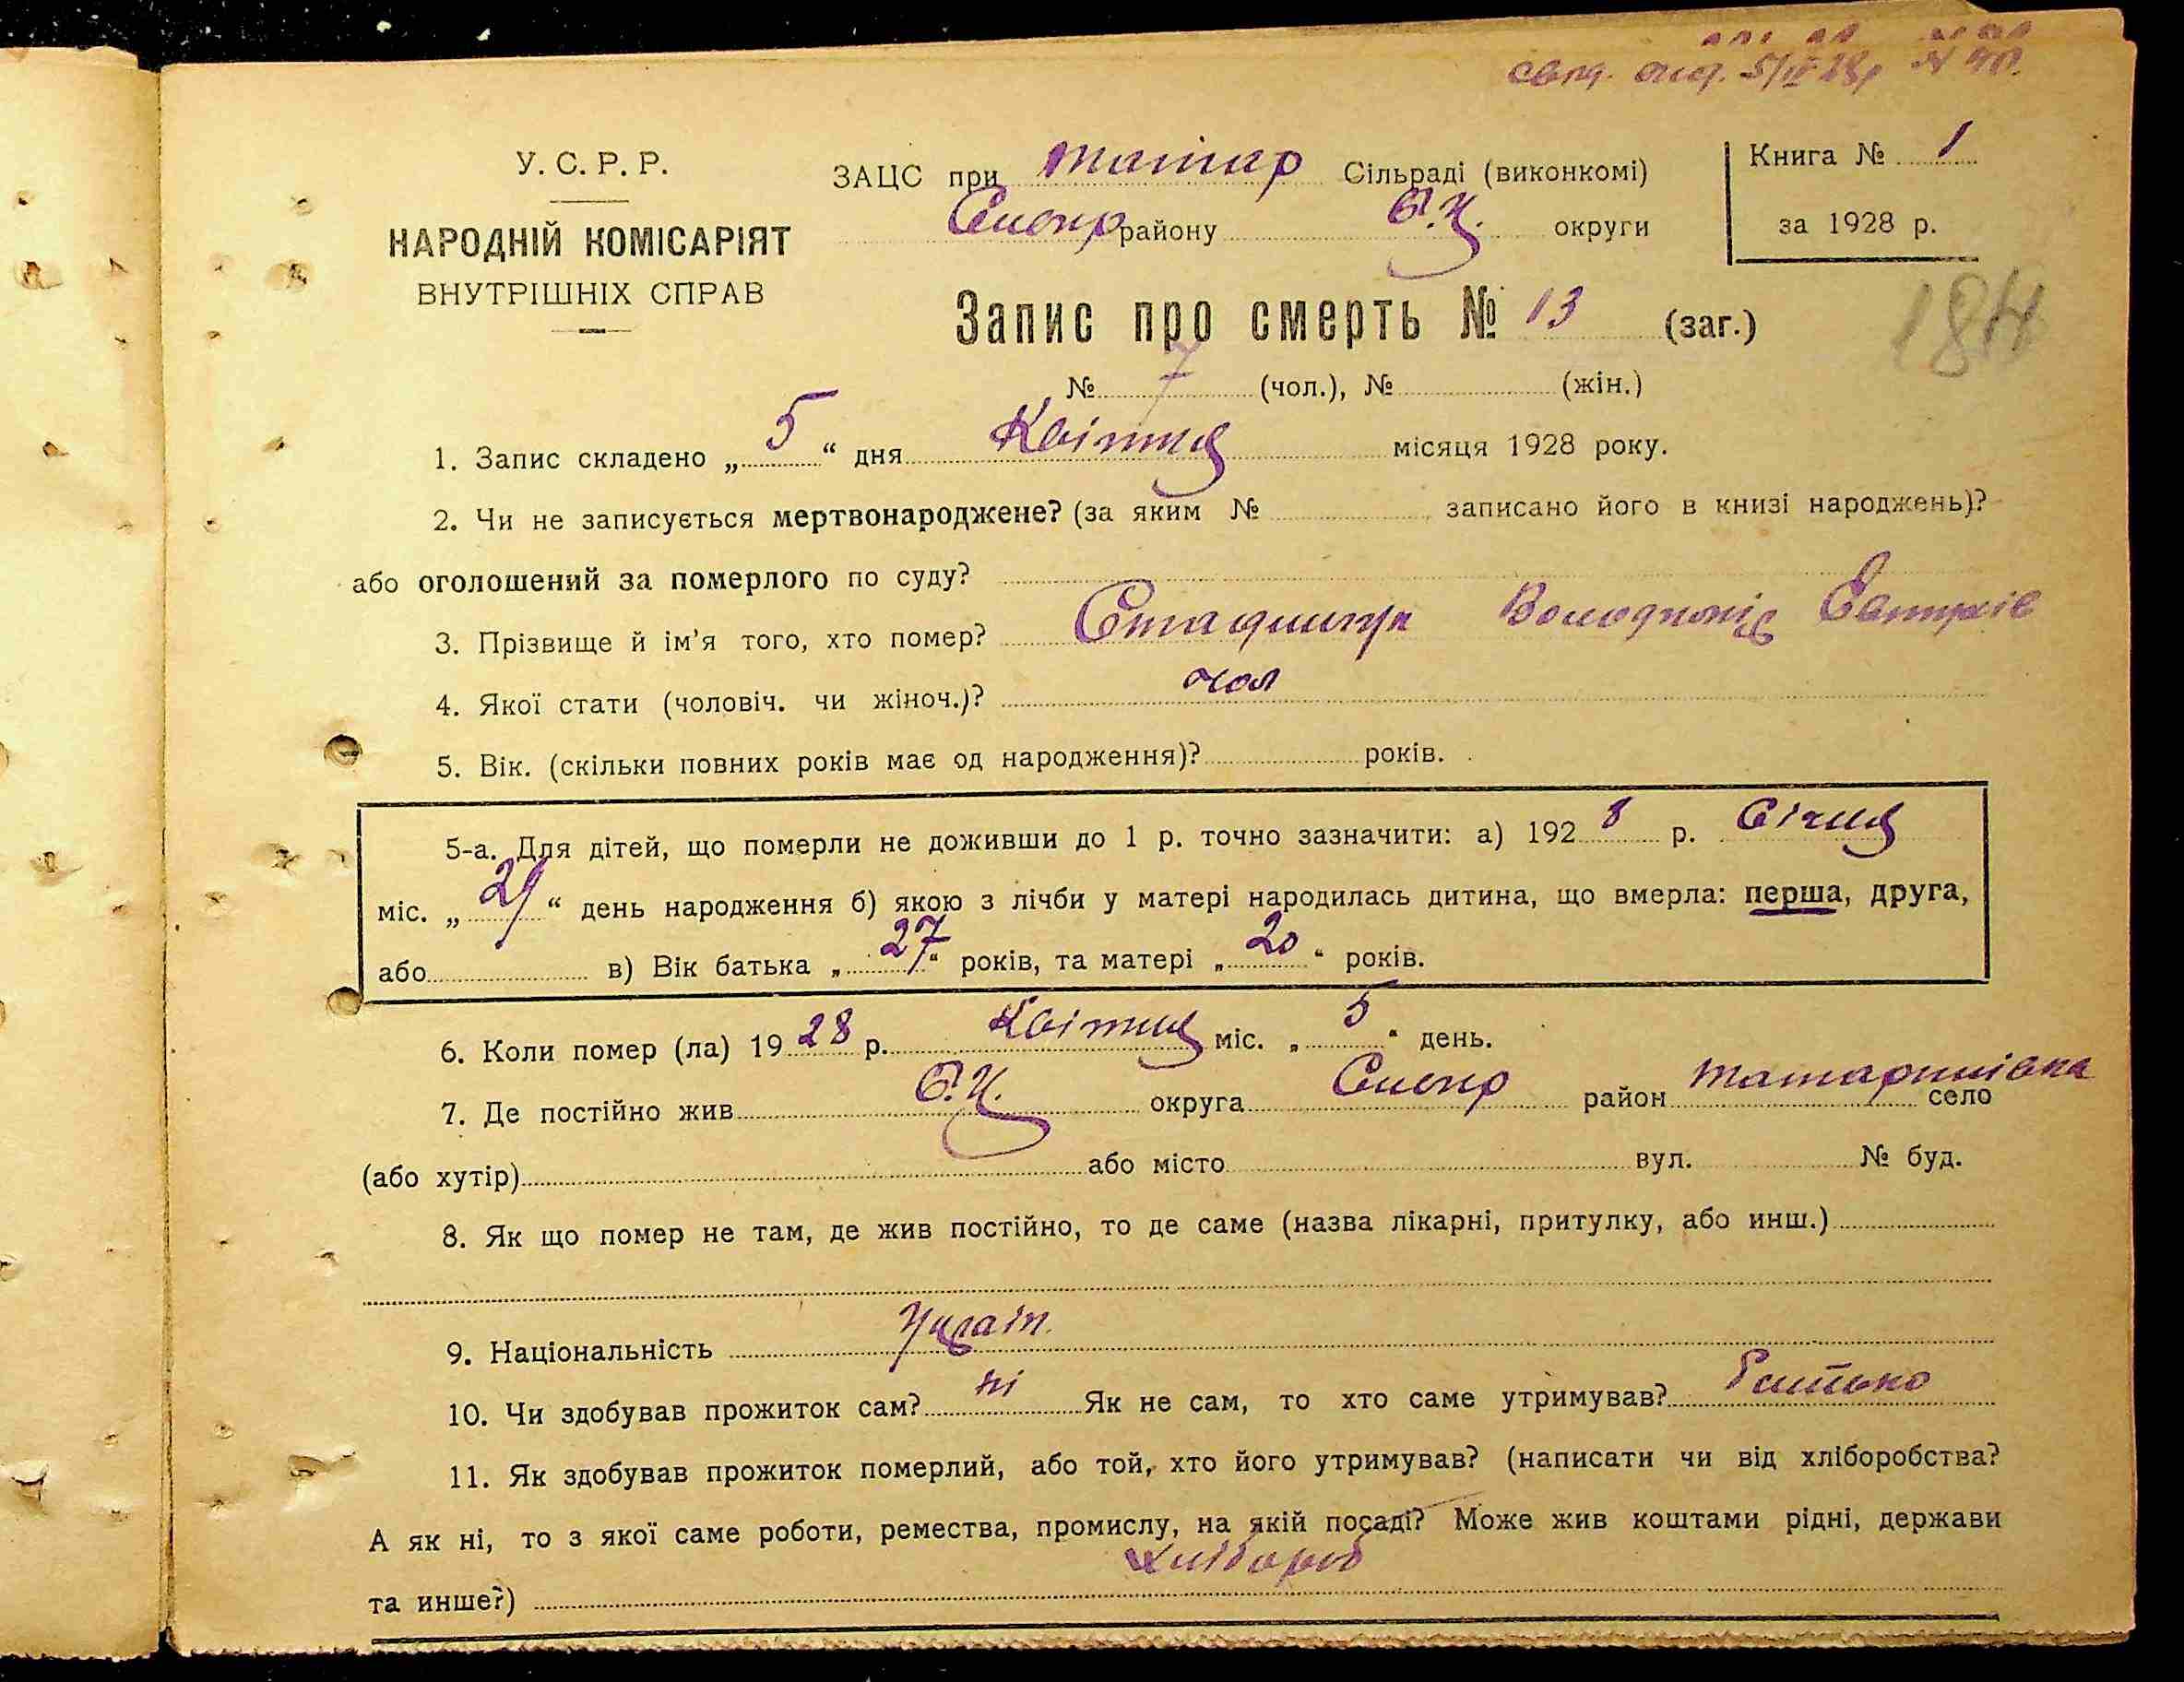 свід. вид. 5/IV 28р № 40.
У. С. Р. Р.
НАРОДНІЙ КОМІСАРІЯТ
ВНУТРІШНІХ СПРАВ
ЗАЦС при Татар Сільраді (виконкомі)
району Б.Ц. округи
Книга № 1
за 1928 р.
184
Запис про смерть № 13 (заг.)
№ 7 (чол.), № (жін.)
1. Запис складено „ 5 “ дня Квітня місяця 1928 року.
2. Чи не записується мертвонароджене? (за яким № записано його в книзі народжень)?
або оголошений за померлого по суду?
3. Прізвище й ім’я того, хто помер? Стадничук Володимір
4. Якої стати (чоловіч. чи жіноч.)? чол
5. Вік. (скільки повних років має од народження)? років.
5-а. Для дітей, що померли не доживши до 1 р. точно зазначити: а) 192 8 р. Січня
міс. „ 29 “ день народження б) якою з лічби у матері народилась дитина, що вмерла: перша, друга,
або в) Вік батька „ 27 “ років, та матері „ 20 “ років.
6. Коли помер (ла) 19 28 р. Квітня міс. „ 5 “ день.
7. Де постійно жив Б.Ц. округа район Татаринівка село
(або хутір) або місто вул. № буд.
8. Як що помер не там, де жив постійно, то де саме (назва лікарні, притулку, або инш.)
9. Національність Україн.
10. Чи здобував прожиток сам? ні Як не сам, то хто саме утримував? Батько
11. Як здобував прожиток померлий, або той, хто його утримував? (написати чи від хліборобства?
А як ні, то з якої саме роботи, ремества, промислу, на якій посаді? Може жив коштами рідні, держави
та инше?) Хлібороб